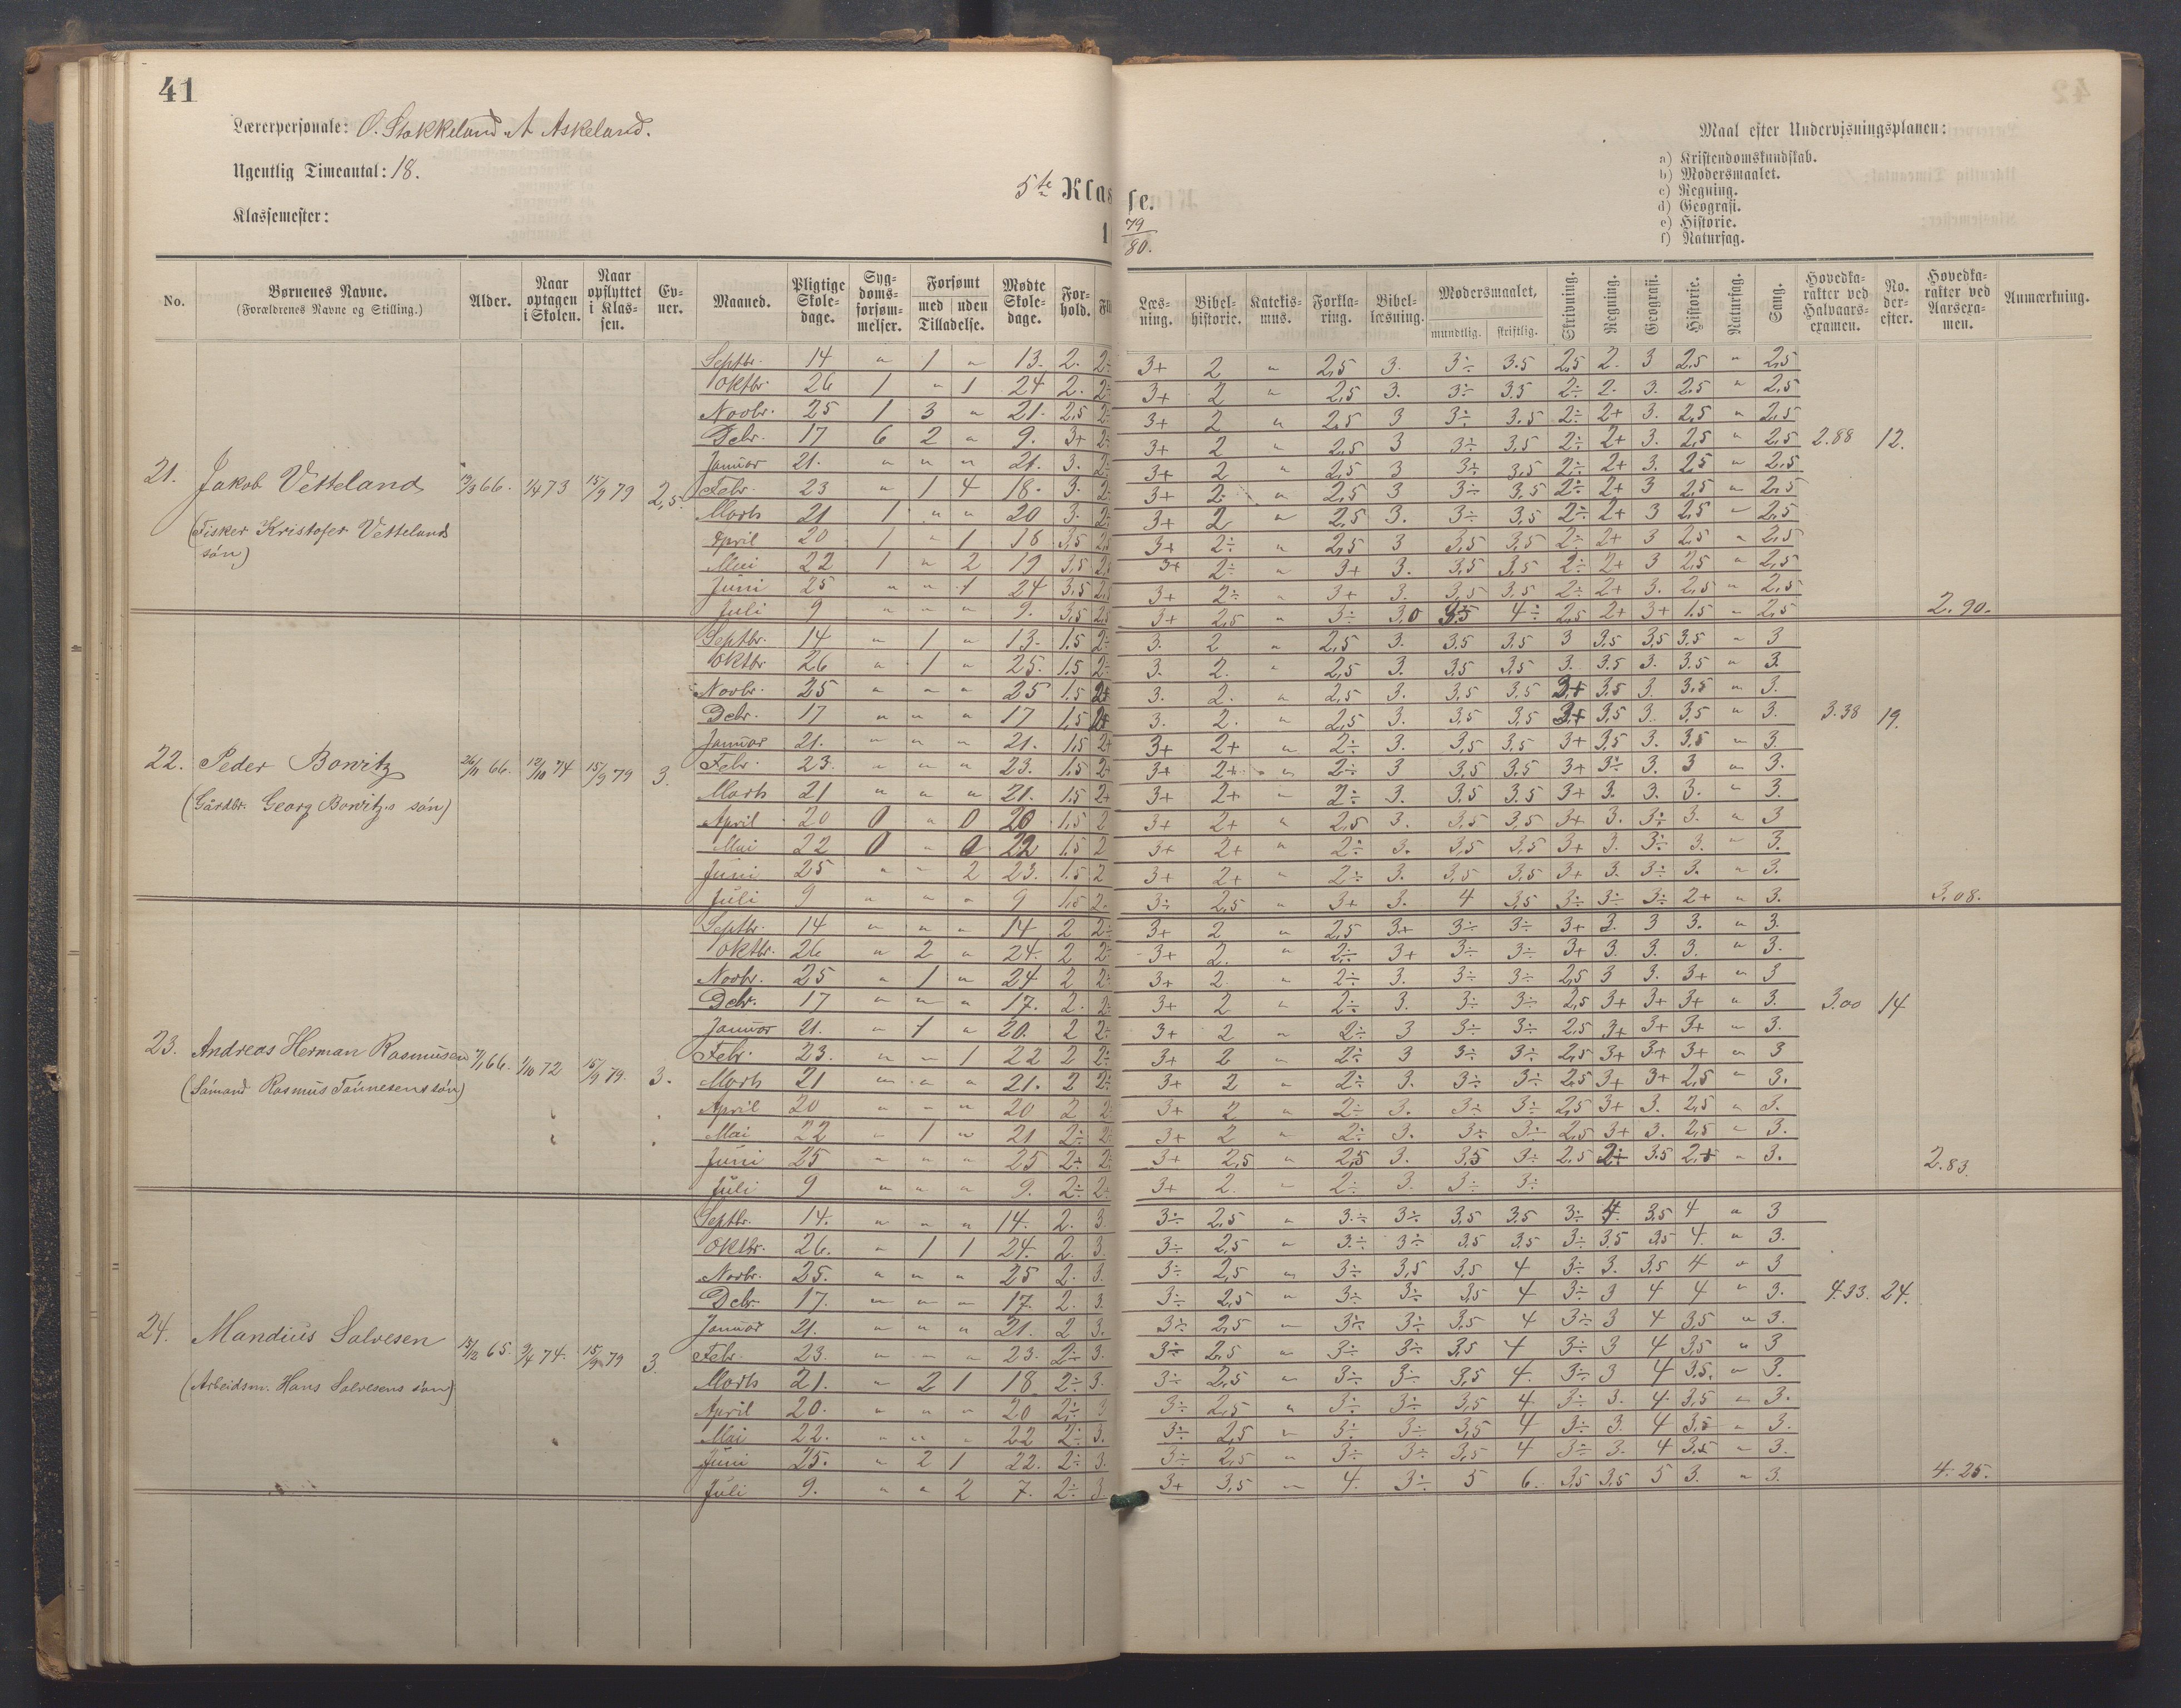 41
Lærerpersonale: O. Stokkeland. A Askeland.
Ugentlig Timeantal: 18.
Klassemester:
5te Klasse.
1 79/80.
Maal efter Undervisningsplanen:
a) Kristendomskundskab.
b) Modersmaalet.
c) Regning.
d) Geografi.
e) Historie.
f) Naturfag.
No. Børnenes Navne. (Forældrenes Navne og Stilling.) Alder. Naar optagen i Skolen. Naar opflyttet i Klassen. Evner. Maaned. Pligtige Skoledage. Sygdomsforsømmelser. Forsømt med uden Tilladelse. Mødte Skoledage. Forhold. Fli
Læsning. Bibelhistorie. Katekismus. Forklaring. Bibellæsning. Modersmaalet, mundtlig. skriftlig. Skrivning. Regning. Geografi. Historie. Naturfag. Sang. Hovedkarakter ved Halvaarsexamen. No. derefter. Hovedkarakter ved Aarsexamen. Anmærkning.
Septbr. 14 " 1 " 13. 2. 2÷ 3+ 2 " 2,5 3. 3÷ 3.5 2,5 2. 3 2,5 " 2,5
Oktbr. 26 1 " 1 24 2. 2÷ 3+ 2 " 2,5 3. 3÷ 3,5 2÷ 2. 3. 2.5 " 2,5
Novbr. 25 1 3 " 21. 2,5 2÷ 3+ 2 " 2,5 3 3÷ 3.5 2÷ 2+ 3. 2,5 " 2,5
Debr. 17 6 2 " 9. 3+ 2÷ 3+ 2 " 2,5 3 3÷ 3,5 2÷ 2+ 3. 2,5 " 2,5 2.88 12.
Januar 21. " " " 21. 3. 2÷ 3+ 2 " 2,5 3 3÷ 3,5 2÷ 2+ 3. 2,5 " 2,5
21. Jakob Vetteland 19/3 66. 1/4 73 15/9 79 2,5. Febr. 23 " 1 4 18. 3. 2÷ 3+ 2. " 2,5 3 3÷ 3,5 2÷ 2+ 3 2,5 " 2,5
(Fisker Kristofer Vettelands søn)
Marts 21 1 " " 20 3. 2÷ 3+ 2 " 2,5 3. 3÷ 3,5 2÷ 2+ 3 2,5 " 2,5
April 20 1 " 1 18 3,5 2,5 3+ 2÷ " 2,5 3 3,5 3,5 2÷ 2+ 3 2,5 " 2,5
Mai 22 1 " 2 19 3,5 2,5 3+ 2÷ " 3+ 3. 3,5 3,5 2÷ 2+ 3 2,5 " 2,5
Juni 25 " " 1 24 3,5 2,5 3+ 2÷ " 3+ 3. 3,5 3,5 2÷ 2+ 3. 2,5 " 2,5
Juli 9 " " " 9. 3,5 2,5 3+ 2,5 " 3÷ 3,0 3.5 4÷ 2,5 2+ 3+ 1.5 " 2,5 2.90.
Septbr. 14 " 1 " 13. 1.5 2÷ 3. 2 " 2,5 3. 3,5 3,5 3 3,5 3,5 3,5 " 3
Oktbr 26 " 1 " 25. 1.5 2÷ 3. 2. " 2,5 3. 3,5 3,5 3. 3.5 3. 3.5 " 3.
Novbr. 25 " " " 25 1.5 2+ 3. 2. " 2,5 3. 3,5 3,5 3+ 3,5 3. 3.5 " 3.
Debr. 17 " " " 17 1,5 2+ 3. 2. " 2,5 3. 3,5 3,5 3+ 3,5 3. 3,5 " 3. 3.38 19.
Januar 21. " " " 21. 1,5 2+ 3+ 2+ " 2÷ 3. 3,5 3,5 3+ 3,5 3. 3,5 " 3.
22. Peder Bowitz 26/11 66. 12/10 74 15/9 79 3. Febr. 23. " " " 23. 1.5 2+ 3+ 2+ " 2÷ 3 3,5 3.5 3+ 3÷ 3. 3 " 3.
(Gårdbr. Georg Bowitz,s søn)
Marts 21 " " " 21. 1.5 2+ 3+ 2+ " 2÷ 3. 3,5 3.5 3+ 3. 3. 3. " 3.
April 20 0 " 0 20 1,5 2 3+ 2+ " 2,5 3. 3,5 3,5 3+ 3. 3÷ 3. " 3
Mai 22 0 " 0 22 1.5 2 3+ 2+ " 2÷ 3. 3,5 3,5 3+ 3. 3÷ 3. " 3.
Juni 25 " " 2 23. 1.5 2 3+ 2+ " 2÷ 3. 3,5 3,5 3+ 3. 3÷ 3. " 3.
Juli 9 " " " 9 1,5 2. 3÷ 2,5 " 3+ 3. 4 3,5 3÷ 3÷ 3÷ 2+ " 3. 3,08.
Septbr. 14 " " " 14 2 2÷ 3+ 2 " 2,5 3+ 3÷ 3÷ 3+ 3. 3 3. " 3.
Oktbr. 26 " 2 " 24. 2 2÷ 3+ 2. " 2÷ 3+ 3÷ 3÷ 3+ 3. 3. 3. " 3.
Novbr. 25 " 1 " 24 2 2÷ 3+ 2 " 2÷ 3. 3÷ 3÷ 2,5 3 3. 3+ " 3
Debr. 17 " " " 17. 2. 2÷ 3+ 2 " 2÷ 3. 3÷ 3÷ 2,5 3+ 3+ 3+ " 3. 3.00 14
Januar 21. " 1 " 20. 2 2÷ 3+ 2 " 2÷ 3 3÷ 3÷ 2,5 3+ 3+ 3+ " 3.
23. Andreas Herman Rasmusen 7/1 66. 1/10 72 15/9 79. 3. Febr. 23. " " 1 22 2 2÷ 3+ 2 " 2÷ 3 3÷ 3÷ 2,5 3+ 3+ 3+ " 3
(Sømand Rasmus Tønnesens søn)
Marts 21 " " " 21. 2 2÷ 3+ 2 " 2÷ 3. 3÷ 3÷ 2.5 3+ 3+ 2,5 " 3.
April 20 " " " 20 2 2÷ 3+ 2 " 2÷ 3. 3÷ 3÷ 2,5 3+ 3. 2,5 " 3.
Mai 22 " 1 " 21 2÷ 2÷ 3+ 2 " 2÷ 3. 3÷ 3÷ 2,5 3+ 3. 2,5 " 3.
Juni 25 " " " 25 2÷ 2÷ 3+ 2,5 " 2,5 3. 3,5 3÷ 2,5 2÷ 3.5 2,5 " 3. 2.83.
Juli 9 " " " 9. 2÷ 2÷ 3+ 2. " 2÷ 3. 3÷ 3÷
Septbr. 14. " " " 14. 2. 3. 3÷ 2,5 " 3÷ 3÷ 3,5 3.5 3÷ 4. 3,5 4 " 3
Oktbr. 26. " 1 1 24. 2. 3. 3÷ 2,5 " 3÷ 3÷ 3,5 3,5 3÷ 3,5 3,5 4. " 3.
Novbr. 25. " " " 25 2. 3. 3÷ 2,5 " 3÷ 3,5 3,5 4 3÷ 3. 3,5 4 " 3
Debr. 17. " " " 17. 2. 3. 3÷ 2,5 " 3÷ 3÷ 3,5 4 3÷ 3 4 4 " 3. 4.33. 24.
Januar 21. " " " 21. 2 3. 3÷ 2,5 " 3÷ 3÷ 3,5 4 3÷ 3 4 3,5 " 3.
24. Mandius Salvesen 17/12 65. 9/4 74. 15/9 79 3. Febr. 23. " " " 23. 2÷ 3. 3÷ 2,5 " 3÷ 3÷ 3,5 4 3÷ 3 4 3,5 " 3
(Arbeidsm. Hans Salvesens søn)
Marts 21. " 2 1 18 2÷ 3. 3÷ 2,5 " 3÷ 3÷ 3,5 4. 3÷ 3 4 3,5. " 3.
April 20. " " " 20 2÷ 3 3÷ 2,5 " 3÷ 3÷ 3,5 4 3÷ 3. 4. 3,5 " 3.
Mai 22. " " " 22 2÷ 3. 3÷ 2,5 " 3÷ 3÷ 3,5 4 3÷ 3. 4 3,5 " 3.
Juni 25. " 2 1 22. 2÷ 3. 3÷ 2,5 " 3÷ 3÷ 3,5 4 3÷ 3. 4 3,5 " 3.
Juli 9. " " 2 7. 2÷ 3. 3+ 3,5 " 4. 3÷ 5 6. 3,5 3,5 5 3. " 3. 4.25.